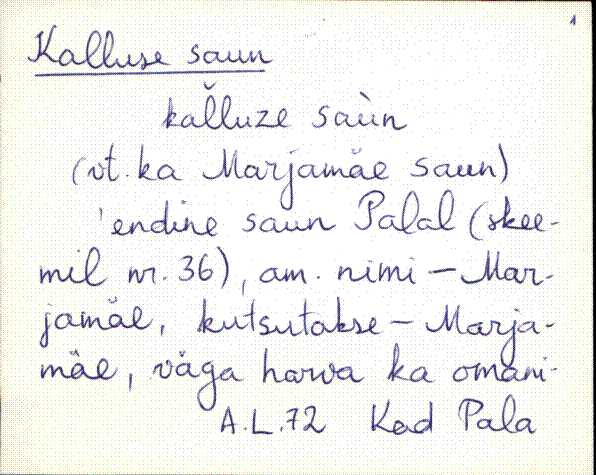 1
Kalluse saun
kal̆luze saùn
(vt. ka Marjamäe saun)
'endine saun Palal (skee-
mil nr. 36), am. nimi – Mar-
jamäe, kutsutakse – Marja-
mäe, väga harva ka omani-
A.L.72 Kod Pala